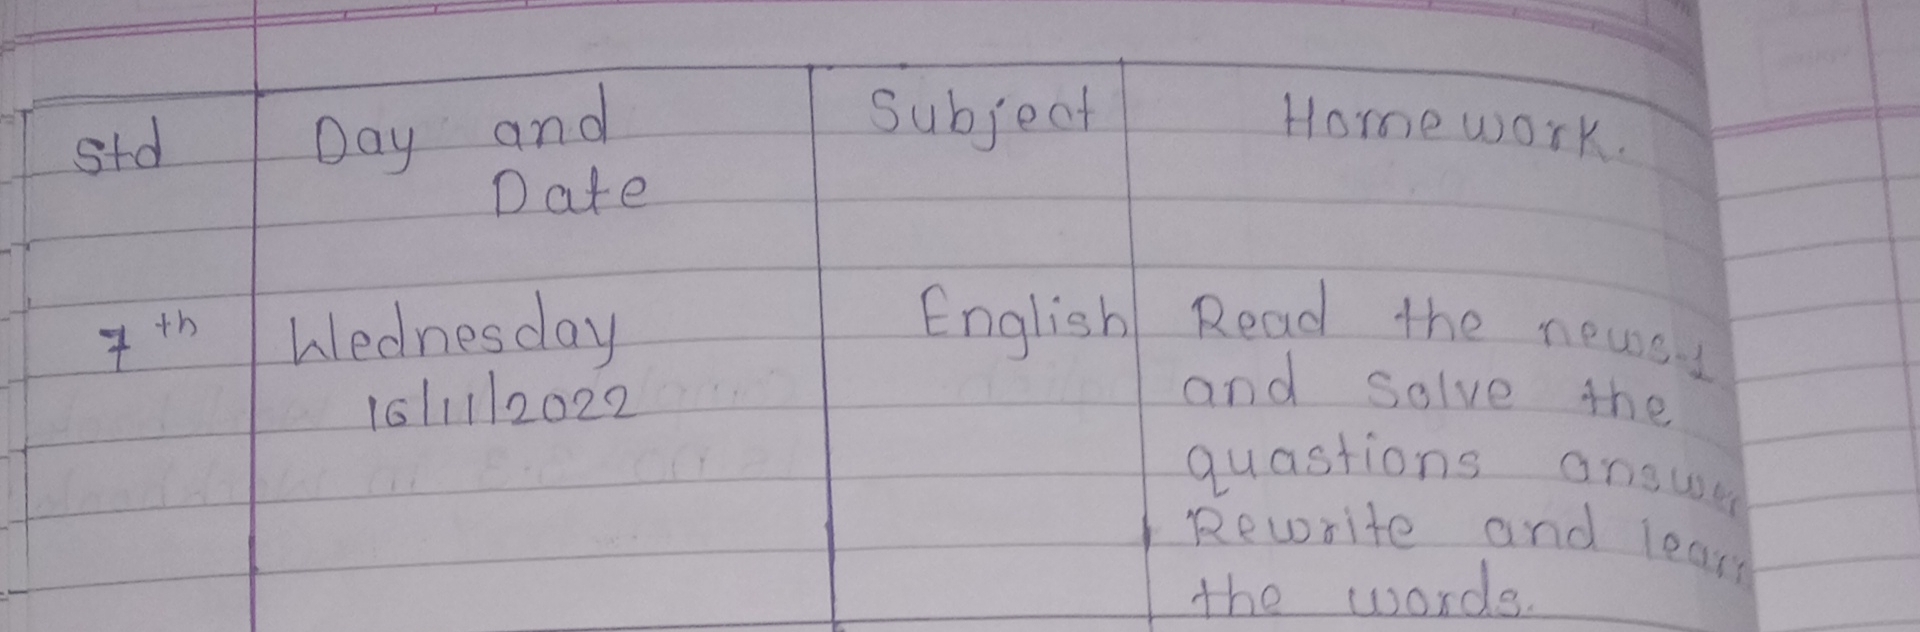 Std Day and Subject Homework.
Date
7th Wednesday English Read the news-1
16/11/2022 and solve the
quastions answer
Rewrite and learn
the words.